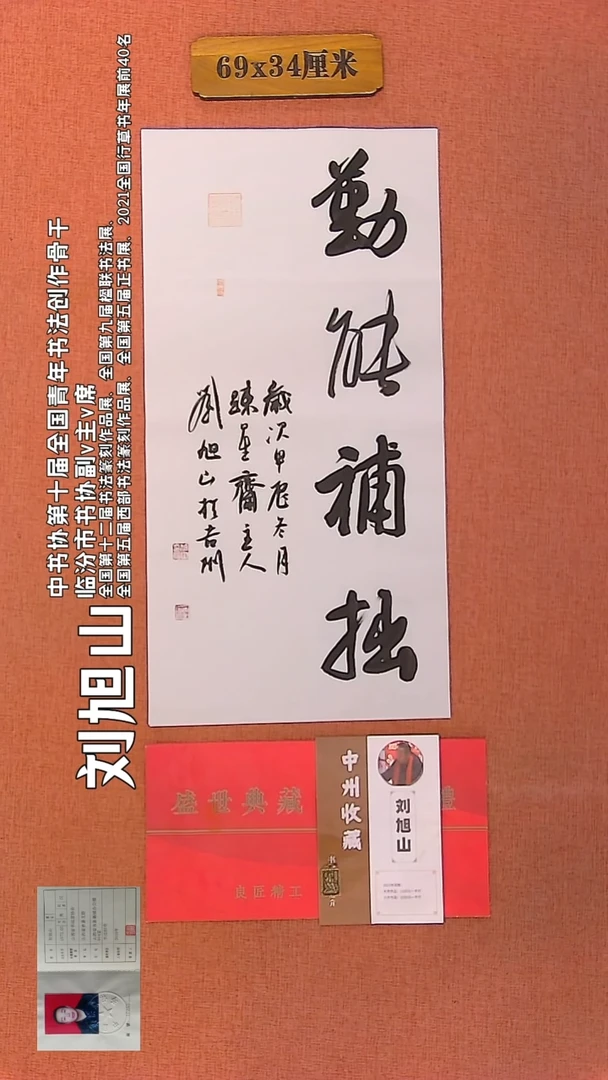 69x34厘米
勤能补拙
歲次甲辰冬月
踈星齋主人
劉旭山於吉州
中书协第十届全国青年书法创作骨干
临汾市书协副v主v席
全国第十二届书法篆刻作品展、全国第九届楹联书法展、
全国第五届西部书法篆刻作品展、全国第五届正书展、2021全国行草书年展前40名
刘旭山
盛世典藏
虎匠精工
中州收藏
刘旭山
禮